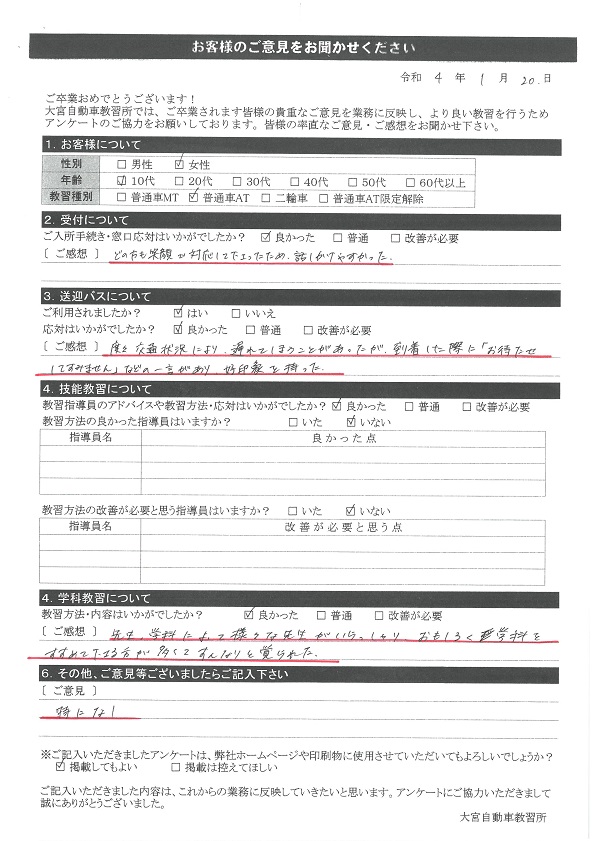 お客様のご意見をお聞かせください
令和 4 年 1 月 20 日
ご卒業おめでとうございます！
大宮自動車教習所では、ご卒業されます皆様の貴重なご意見を業務に反映し、より良い教習を行うため
アンケートのご協力をお願いしております。皆様の率直なご意見・ご感想をお聞かせ下さい。
1. お客様について
性別 □ 男性 ☑ 女性
年齢 ☑ 10代 □ 20代 □ 30代 □ 40代 □ 50代 □ 60代以上
教習種別 □ 普通車MT ☑ 普通車AT □ 二輪車 □ 普通車AT限定解除
2. 受付について
ご入所手続き・窓口応対はいかがでしたか？ ☑ 良かった □ 普通 □ 改善が必要
［ ご感想 ］ どの方も笑顔で対応して下さったため、話しかけやすかった。
3. 送迎バスについて
ご利用されましたか？ ☑ はい □ いいえ
応対はいかがでしたか？ ☑ 良かった □ 普通 □ 改善が必要
［ ご感想 ］ 度々交通状況により、遅れてしまうことがあったが、到着した際に「お待たせ
してすみません」などの一言があり、好印象を持った。
4. 技能教習について
教習指導員のアドバイスや教習方法・応対はいかがでしたか？ ☑ 良かった □ 普通 □ 改善が必要
教習方法の良かった指導員はいますか？ □ いた ☑ いない
指導員名 良かった点
教習方法の改善が必要と思う指導員はいますか？ □ いた ☑ いない
指導員名 改善が必要と思う点
4. 学科教習について
教習方法・内容はいかがでしたか？ ☑ 良かった □ 普通 □ 改善が必要
［ ご感想 ］ 先生、学科によって様々な先生がいらっしゃり、おもしろく学科を
すすめて下さる方が多くてすんなりと覚られた。
6. その他、ご意見等ございましたらご記入下さい
［ ご意見 ］
特になし
※ご記入いただきましたアンケートは、弊社ホームページや印刷物に使用させていただいてもよろしいでしょうか？
☑ 掲載してもよい □ 掲載は控えてほしい
ご記入いただきました内容は、これからの業務に反映していきたいと思います。アンケートにご協力いただきまして
誠にありがとうございました。
大宮自動車教習所